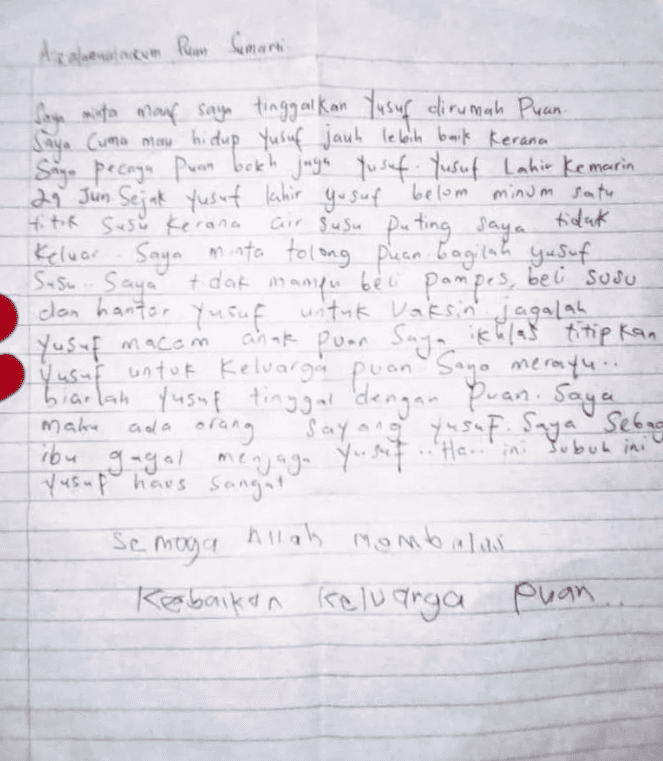 Assalamualaikum Puan Sumarti
Saya minta maaf saya tinggalkan Yusuf dirumah Puan.
Saya Cuma mau hidup Yusuf jauh lebih baik Kerana
Saya pecaya Puan boleh jaga Yusuf. Yusuf Lahir Kemarin
29 Jun. Sejak Yusuf lahir yusuf belom minum satu
titik Susu Kerana air susu puting saya tidak
Keluar. Saya minta tolong puan bagilah yusuf
Susu.. Saya tidak mampu beli pampes, beli susu
dan hantar Yusuf untuk Vaksin. jagalah
Yusuf macam anak puan Saya ikhlas titipkan
Yusuf untuk Keluarga puan Saya merayu..
biarlah Yusuf tinggal dengan Puan. Saya
mahu ada orang Sayang Yusuf. Saya Sebag
ibu gagal menjaga Yusuf.. Hari ini Subuh ini
Yusuf haus Sangat
Semoga Allah membalas
Kebaikan Keluarga Puan..